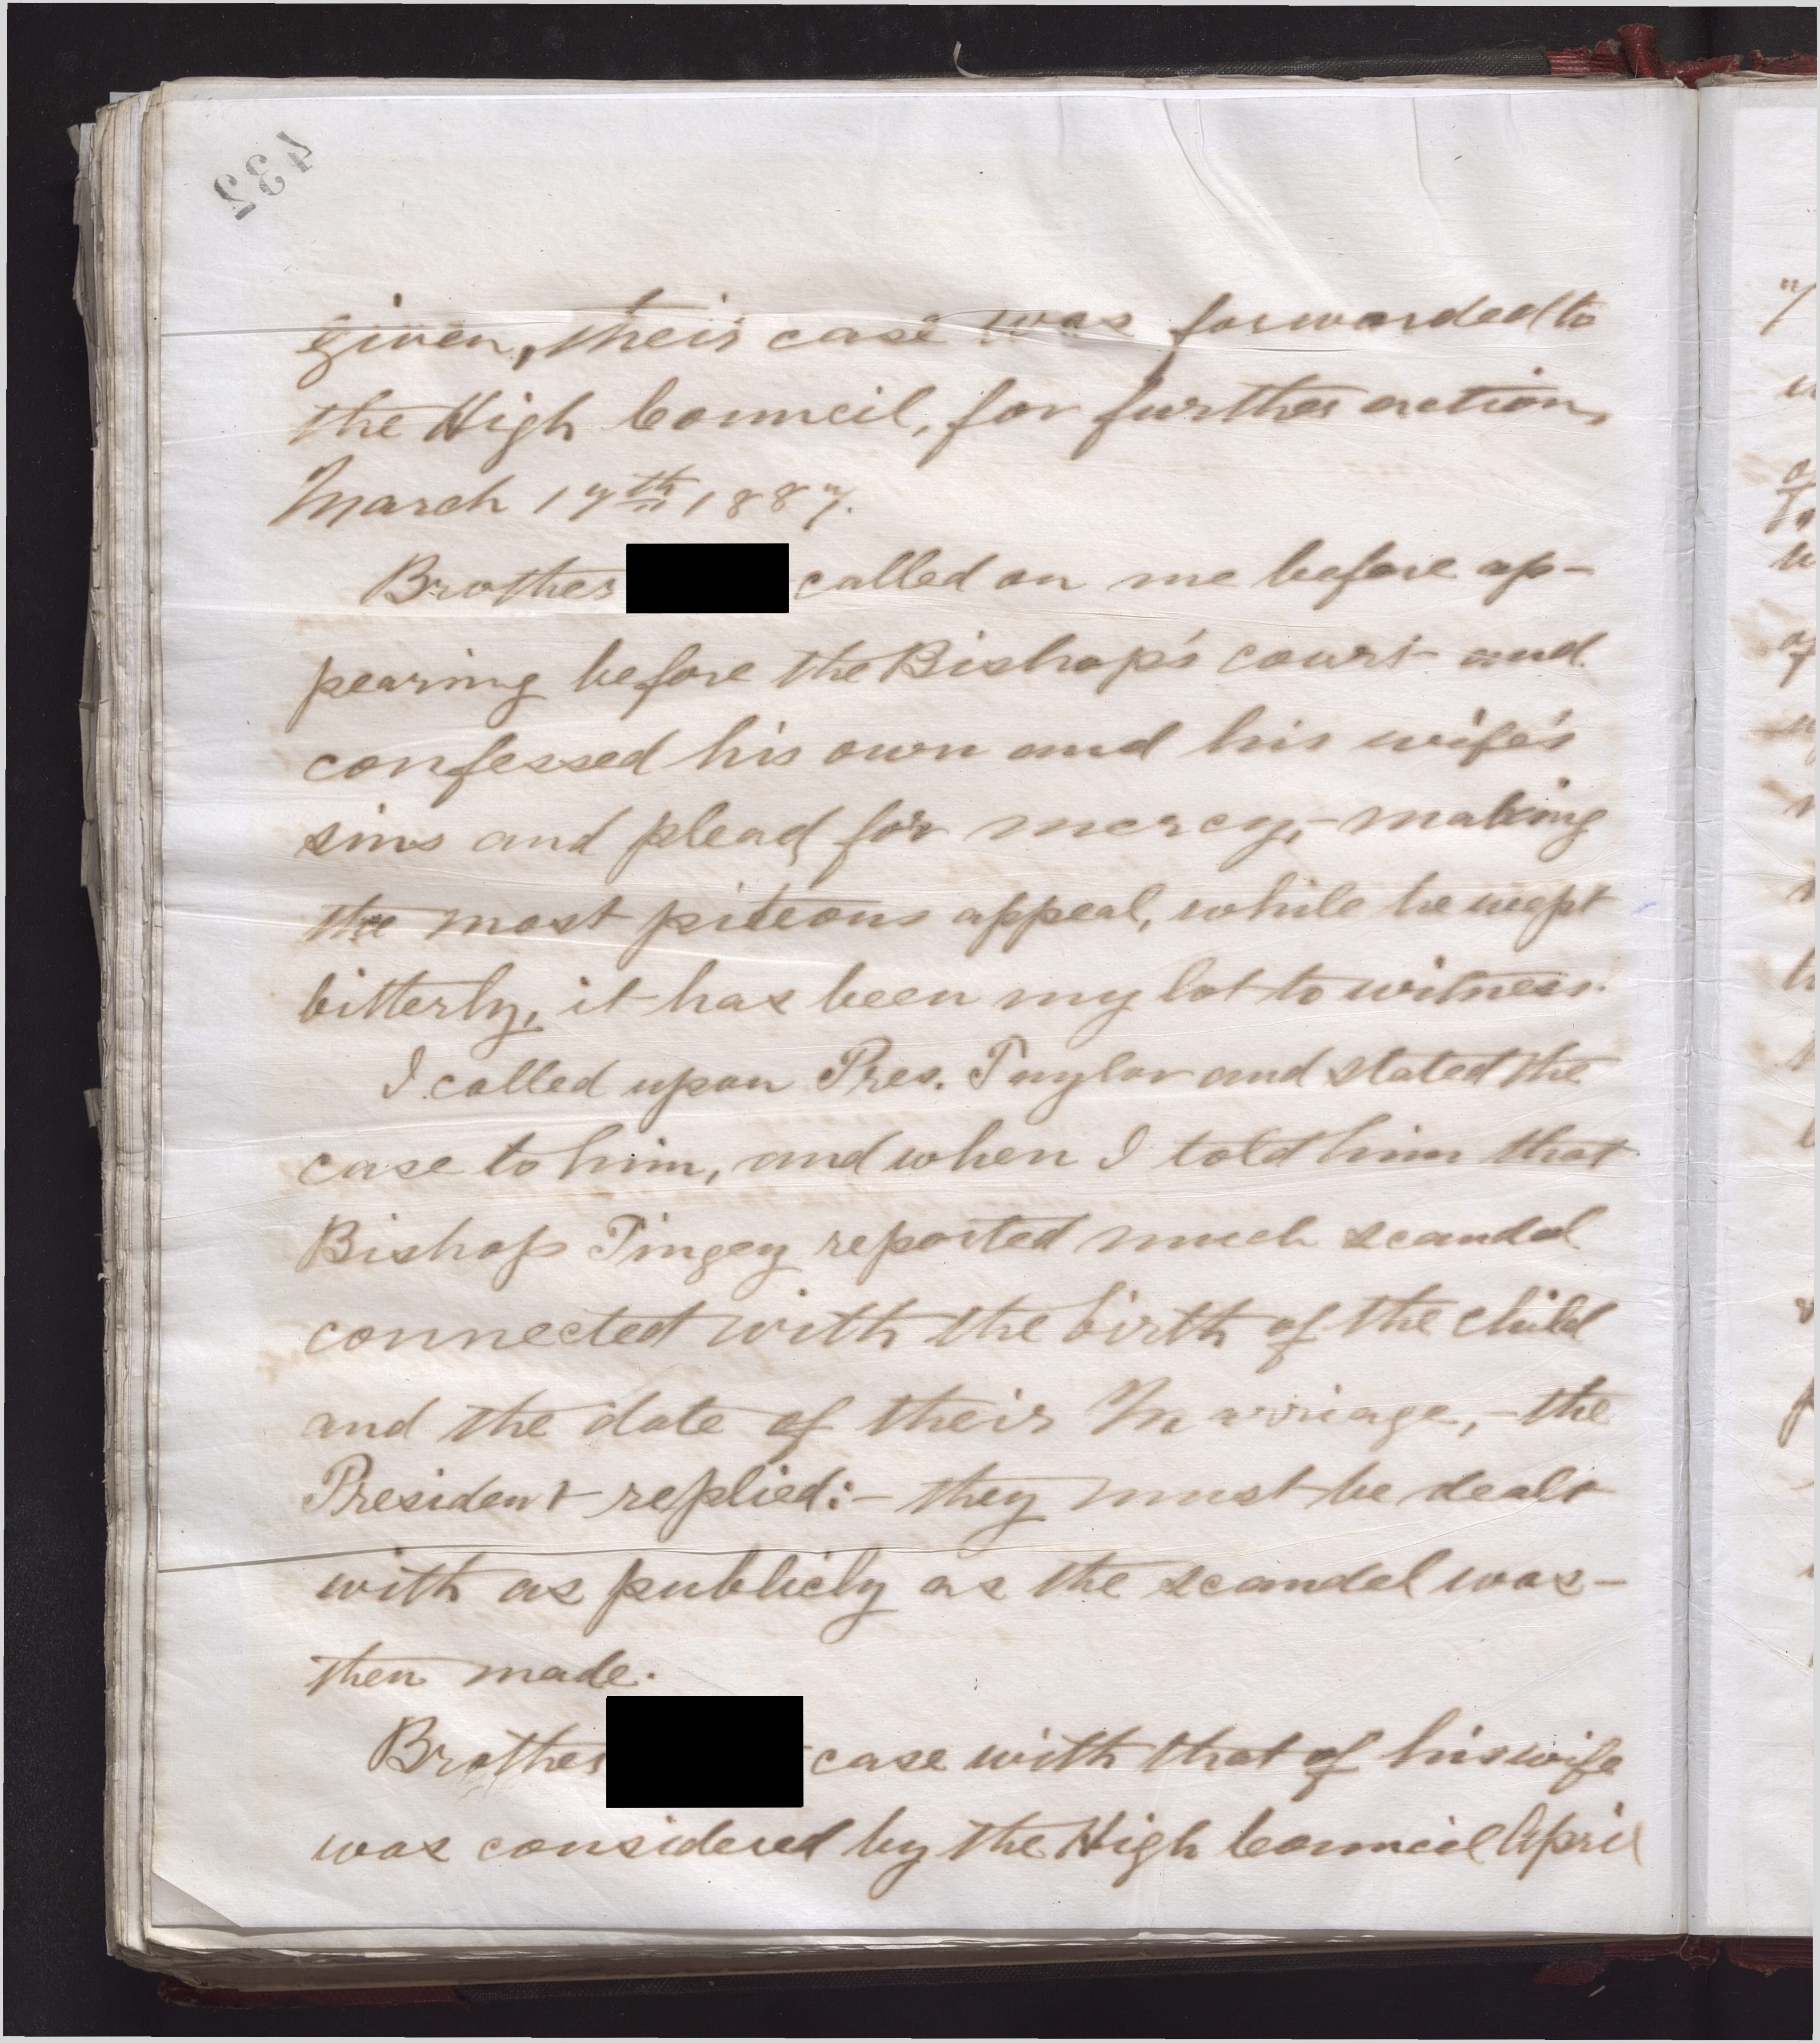 432
given, their case was forwarded to
the High Council, for further action,
March 17th 1887.
Brother called on me before ap-
pearing before the Bishop's court and
confessed his own and his wife's
sins and plead for mercy,- making
the most piteous appeal, while he wept
bitterly, it has been my lot to witness.
I called upon Pres. Taylor and stated the
case to him, and when I told him that
Bishop Tingey reported much scandal
connected with the birth of the child
and the date of their Marriage,- the
President replied:- they must be dealt
with as publicly as the scandel was-
then made.
Brother case with that of his wife
was considered by the High Council April